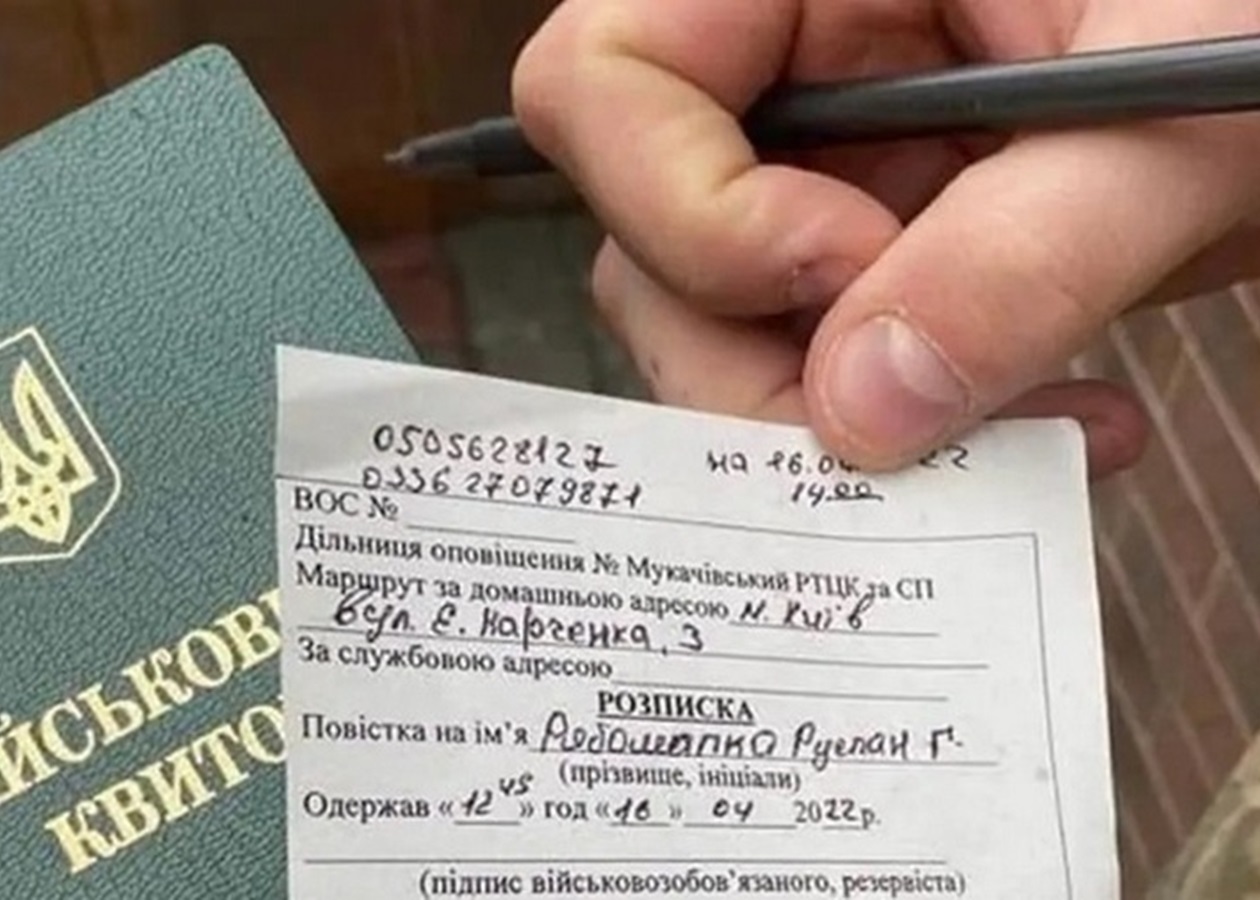 0505628127 на 16.04 22
0336 27079871 14.00
ВОС №
Дільниця оповіщення № Мукачівський РТЦК та СП
Маршрут за домашньою адресою м. Київ
вул. Є. Харченка, 3
За службовою адресою
РОЗПИСКА
Повістка на ім'я Рябошапка Руслан Г.
(прізвище, ініціали)
Одержав «12 45» год «16» 04 2022р.
(підпис військовозобов'язаного, резервіста)
ЙСЬКОВИ
КВИТО